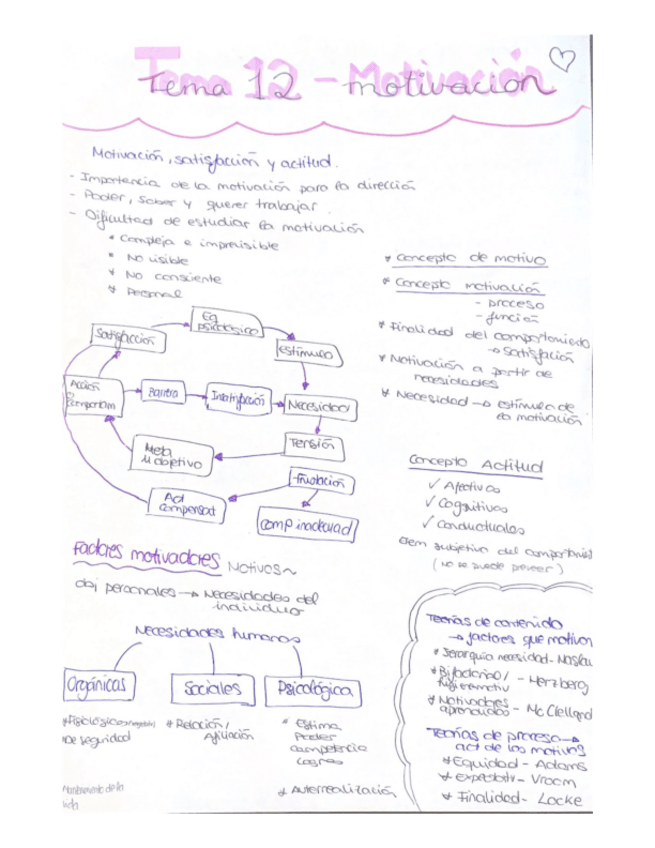 Tema 12 - Motivación
Motivación, satisfacción y actitud.
- Importancia de la motivación para la dirección
- Poder, saber y querer trabajar.
- Dificultad de estudiar la motivación
* Compleja e imprevisible
* No visible
* No consciente
* Personal
* Concepto de motivo
* Concepto motivación
- proceso
- función
* Finalidad del comportamiento
→ satisfación
* Motivación a partir de
necesidades
* Necesidad → estímulo de
la motivación
Satisfacción
Eq
psicológico
Estímulo
Acción
comportam
Barrera
Insatisfacción
Necesidad
Tensión
Meta
u objetivo
Frustación
Act
compensat
Comp inadecuad
Concepto Actitud
✓ Afectivos
✓ Cognitivos
✓ Conductuales
Elem subjetivo del comportami
(no se puede prever)
Factores motivadores Motivos~
obj personales → Necesidades del
individuo
Necesidades humanas
Orgánicas
Sociales
Psicológica
* Fisiológico
* De seguridad
* Relación/
Afiliación
* Estima
Poder
competencia
Logros
* Autorrealización
Mantenimiento de la
vida
Teorías de contenido
→ factores que motivan
* Jerarquía necesidad - Maslow
* Bifactorial / - Herzberg
* Motivadores
aprendidos - Mc Clelland
Teorías de proceso →
act de los motivos
* Equidad - Adams
* Expectativ - Vroom
* Finalidad - Locke